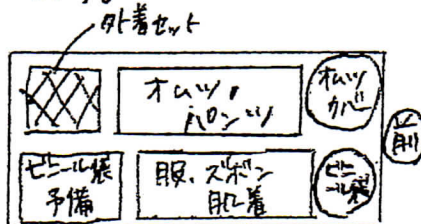 外着セット
オムツ、
パンツ
オムツ
カバー
前
ビニール袋
予備
服、ズボン
肌着
ビニ
ール袋